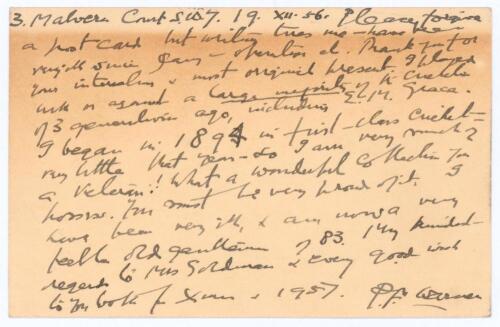 3. Malvern Court S.W.7. 19. XII-56. Please forgive
a post card but writing tires me - have been
very ill since Jany - operation &c. Thank you for
your interesting & most original present. I played
with or against a large majority of the cricketers
of 3 generations ago, including E. M. Grace.
I began in 1894 in first-class cricket -
very little that year - so I am very much of
a veteran! What a wonderful collection you
possess. You must be very proud of it. I
have been very ill, & am now a very
feeble old gentleman of 83. My kindest
regards to Mrs Goldman & every good wish
to you both for Xmas & 1957. P.F. Warner